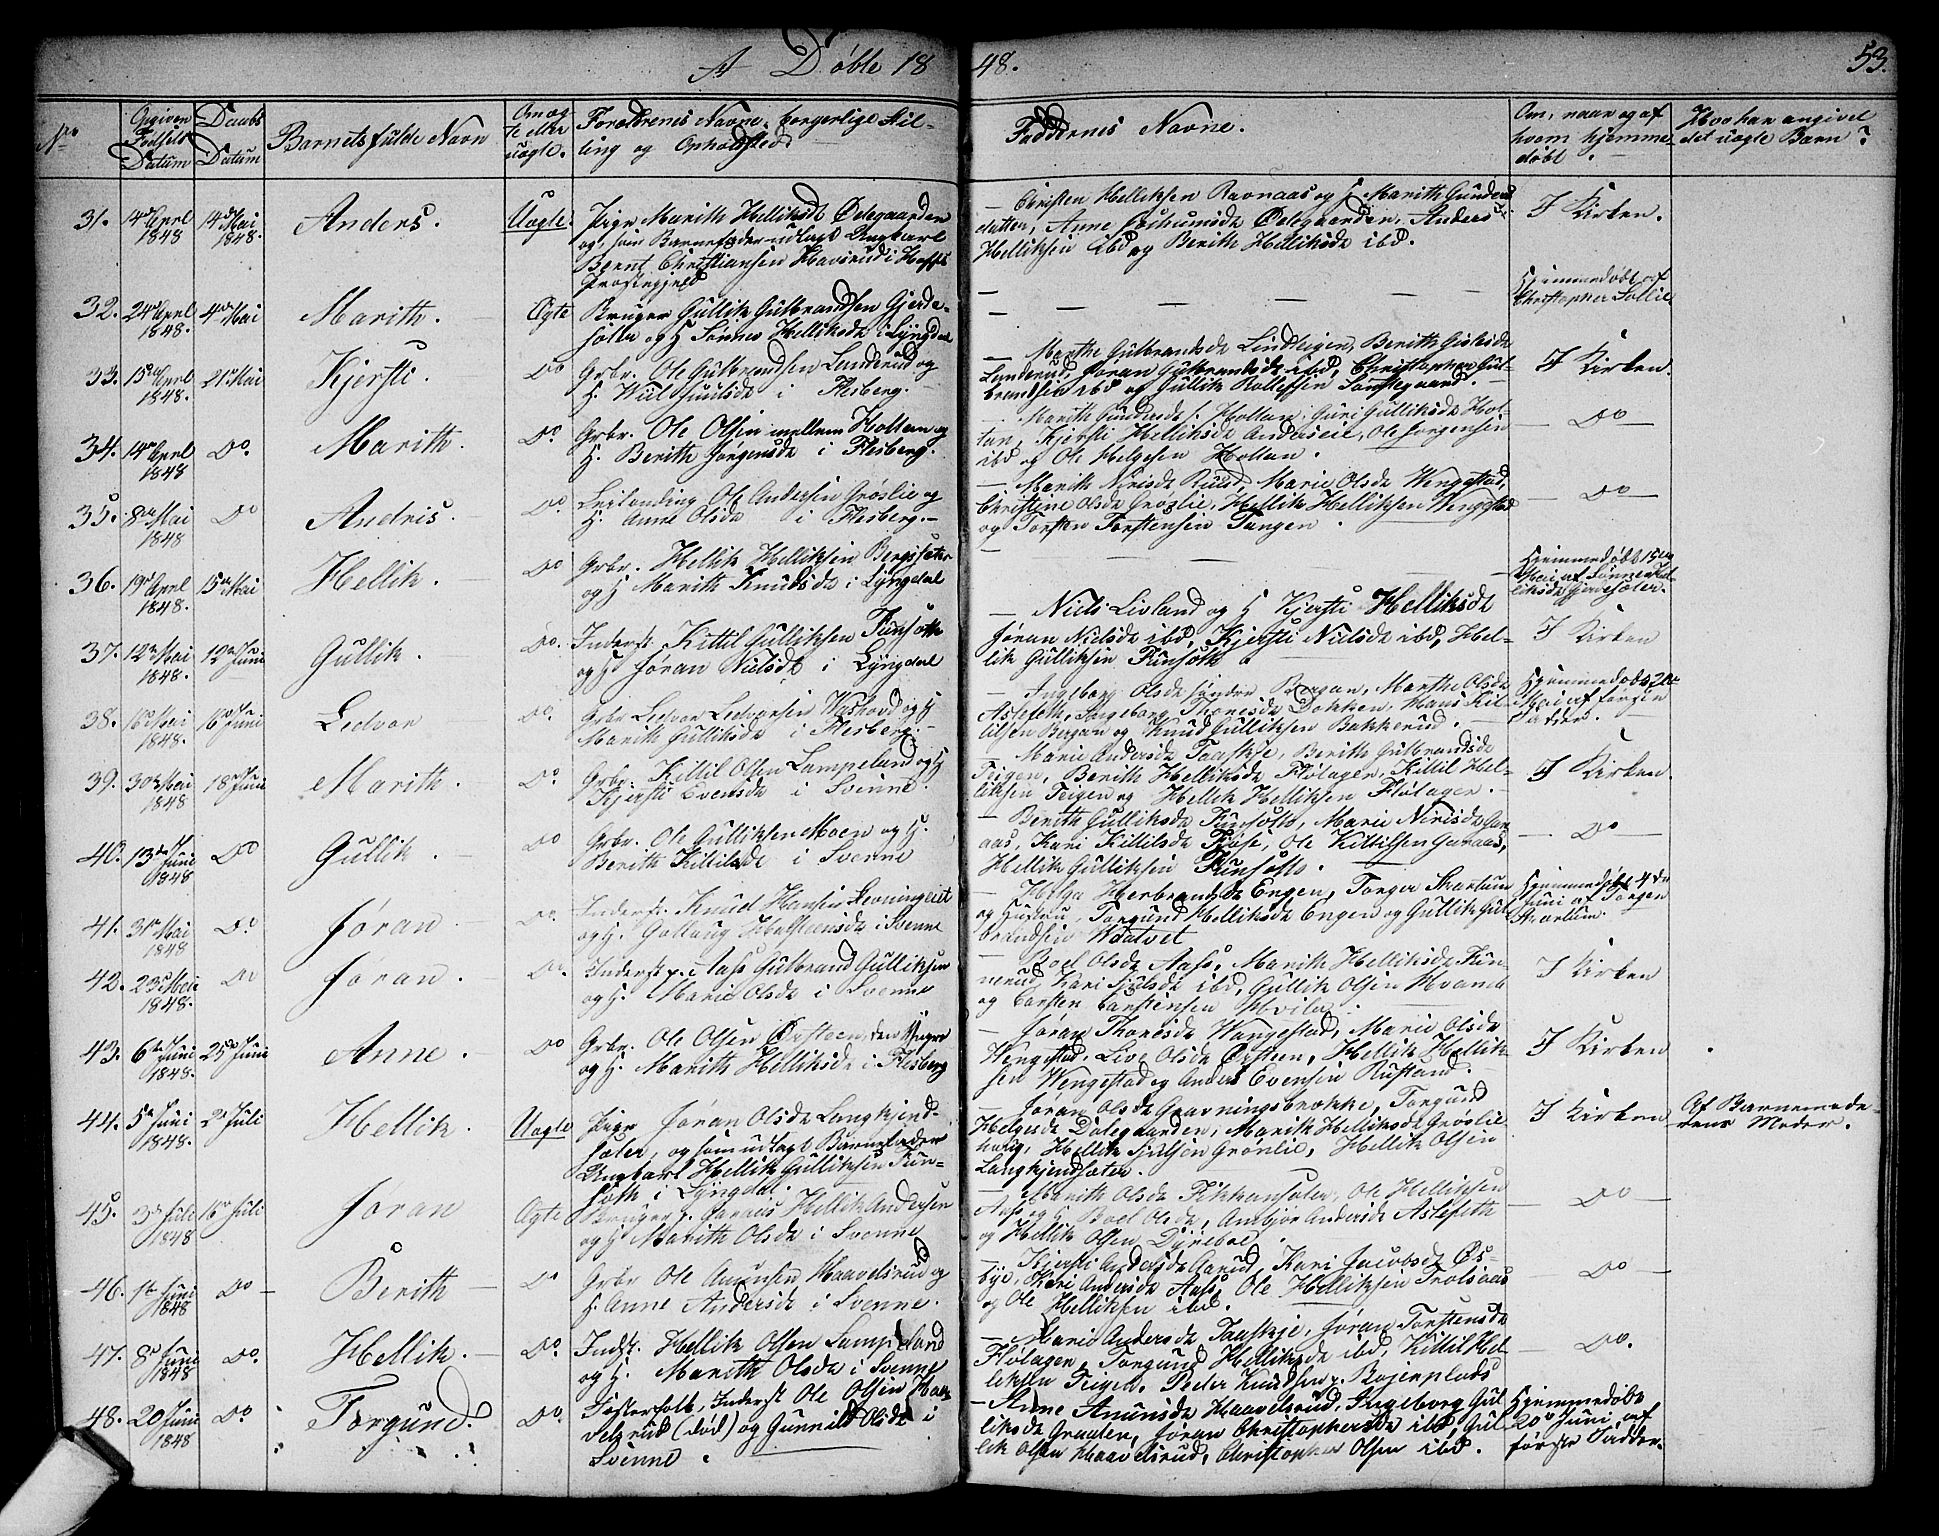 A Døbte 1848. 53.
No Opgiven Fødsels Datum Daabs Datum Barnets fulde Navn Om ægte eller uægte. Forældrenes Navne, borgerlige Stilling og Opholdssted Faddernes Navne. Om, naar og af hvem hjemmedøbt. Hvo har angivet det uægte Barn?
31. 14de April 1848 14de Mai 1848. Anders. Uægte. Pige Marith Helliksdt Ødegaarden
og som Barnefader udlagt Ungkarl
Bernt Christiansen Havsrud i
Præstegjeld
— Christen Helliksen Ravnaas og H. Marith Gunders
datter, Anne Ødegaarden, Anders
Helliksen ibd og Berith Helliksdt ibd.
I Kirken.
32. 24de April 1848. 4de Mai Marith. Ægte Bruger Gullik Gulbrandsen Gjerde-
sæter og H. Helliksdt i Lyngdal
— — — — — —
Hjemmedøbt af
Christopher Sollie
33. 15de April 1848. 21de Mai Kjersti. Do Grbr. Ole Gulbrandsen Lunderud og
H. Juulsdt i Flesberg.
— Marthe Gulbrandsdt Lindteigen, Berith
Lunderud, Jøran Gulbrandsdt ibd, Christopher Gul-
brandsen ibd og Gullik Rolfssen
I Kirken.
34. 14de April 1848 Do. Marith. Do. Grbr. Ole Olsen mellem Holtan og
H. Berith Jørgensdt i Flesberg.
— Marith Holtan, Guri Gulliksdt Hol-
tan, Kjersti Helliksdt Anderseie, Ole Jørgensen
ibd og Ole Helgesen Holtan.
— Do —
35. 8de Mai 1848 Do Andris. Do Leilending Ole Andersen Grøslie og
H. Anne Olsdt i Flesberg.
— Marith Nirisdt Ruud, Marie Olsdt Wengestad,
Christine Olsdt Grøslie, Hellik Helliksen Wengestad
og Torsten Torstensen Tangen.
— Do —
36. 19de April 1848. 15de Mai Hellik. Do Grbr. Hellik Helliksen Bergsæter
og H. Marith Knudsdt i Lyngdal
— — — — — —
Hjemmedøbt 15de
Mai af Hel-
liksdt Gjerdesæter.
37. 12te Mai 1848. 12te Juni Gullik. Do. Inderst. Kittil Gulliksen Funsøth
og H. Jøran Nielsdt i Lyngdal
— Niels Livland og H. Kjersti Helliksdt
Jøran Nielsdt ibd, Kjersti Nielsdt ibd, Hel-
lik Gulliksen Funsøth.
I Kirken
38. 16de Mai 1848. 16de Juni Ledvor Do. Grbr Ledvor Ledvorsen og H.
Marith Gulliksdt i Flesberg.
— Ingeborg Olsdt søndre Bergan, Marthe Olsdt
Aslefeth, Ingeborg Thoresdt Dokken, Hans Kit-
tilsen Bergan og Knud Gulliksen Bakkerud.
Hjemmedøbt 21de
Mai af første
Fadder.
39. 30te Mai 1848 18de Juni Marith. Do. Grbr. Kittil Olsen Lampeland og H.
Kjersti Evensdt i Svenne.
— Marie Andersdt Taaskje, Berith Gulbrandsdt
Teigen, Berith Helliksdt Flølagen, Kittil Hel-
liksen Teigen og Hellik Helliksen Flølagen.
I Kirken.
40. 13de Juni 1848 Do Gullik. Do Grbr. Ole Gulliksen Moen og H.
Berith Kittilsdt i Svenne
— Berith Gulliksdt Funsøth, Marie Nirisdt Gar-
aas, Kari Kittilsdt, Ole Kittilsen Garaas,
Hellik Gulliksen Funsøth.
— Do —
41. 31te Mai 1848 Do. Jøran. Do. Inderst. Knud Hansen
og H. Gollaug Halsteinsdt i Svenne
— Helga Herbrandsdt Engen, Torger Skartum
og Hustru, Torgund Helliksdt Engen og Gullik Gul-
brandsen Waatvet
Hjemmedøbt 4de
Juni af Torger
Skartum.
42. 23de Mai 1848. Do Jøran. Do. Inderst p. Aass Gulbrand Gulliksen
og H. Marie Olsdt i Svenne
— Boel Olsdt Aass, Marith Helliksdt Fin-
nerud, Kari Juulsdt ibd, Gullik Olsen
og Carsten Carstensen Hvila.
I Kirken
43. 6te Juni 1848. 25de Juni Anne. Do Grbr. Ole Olsen Ørsteen, den Yngre
og H. Marith Helliksdt i Flesberg
— Jøran Thoresdt Wangestad, Marie Olsdt
Wengestad, Live Olsdt Ørsteen, Hellik Hellik-
sen Wengestad og Anders Evensen Rustand.
I Kirken
44. 5te Juni 1848. 2de Juli Hellik. Uægte Pige Jøran Olsdt Langkjend-
sæter, og som udlagt Barnefader
Ungkarl Hellik Gulliksen Fun-
søth i Lyngdal.
— Jøran Olsdt Gravningsbrække, Torgund
Helgesdt Ødegaarden, Marith Helliksdt Grøslie-
haug, Hellik Juulsen Grønlie, Hellik Olsen
Langkjendsæter.
I Kirken
Af Barnemode-
rens Moder.
45. 3de Juli 1848 16de Juli Jøran Ægte Bruger p. Garaas Hellik Andersen
og H. Marith Olsdt i Svenne
— Marith Olsdt Fikkansæter, Ole Helliksen
Aass og H. Boel Olsdt, Anbjør Andersdt Aslefeth
og Hellik Olsen Dyreboe.
— Do —
46. 1te Juni 1848 Do — Berith — Do Grbr Ole Amunsen Haavelsrud og
H. Anne Andersdt i Svenne.
— Kjersti Andersdt Aarud, Kari Jacobsdt Øs-
bye, Kari Andersdt Aass, Ole Helliksen Trolsaas
og Ole Helliksen ibd.
— Do —
47. 8de Juni 1848 Do. Hellik. Do. Indst. Hellik Olsen Lampeland
og H. Marith Olsdt i Svenne
— Marie Andersdt Taaskje, Jøran Torstensdt
Flølagen, Torgund Helliksdt ibd, Kittil Hel-
liksen Teigen, Peder Knudsen p. Bojerplads
— Do.
48. 20de Juni 1848 Do. Torgund. Do. Fosterfolk, Inderst Ole Olsen Haa-
velsrud (død) og Gunnild Olsdt i
Svenne.
— Anne Amunsdt Haavelsrud, Ingeborg Gul-
liksdt Graaten, Jøran Christophersdt ibd, Gul-
lik Olsen Haavelsrud, Christopher Olsen ibd.
Hjemmedøbt
20de Juni af
første Fadder.